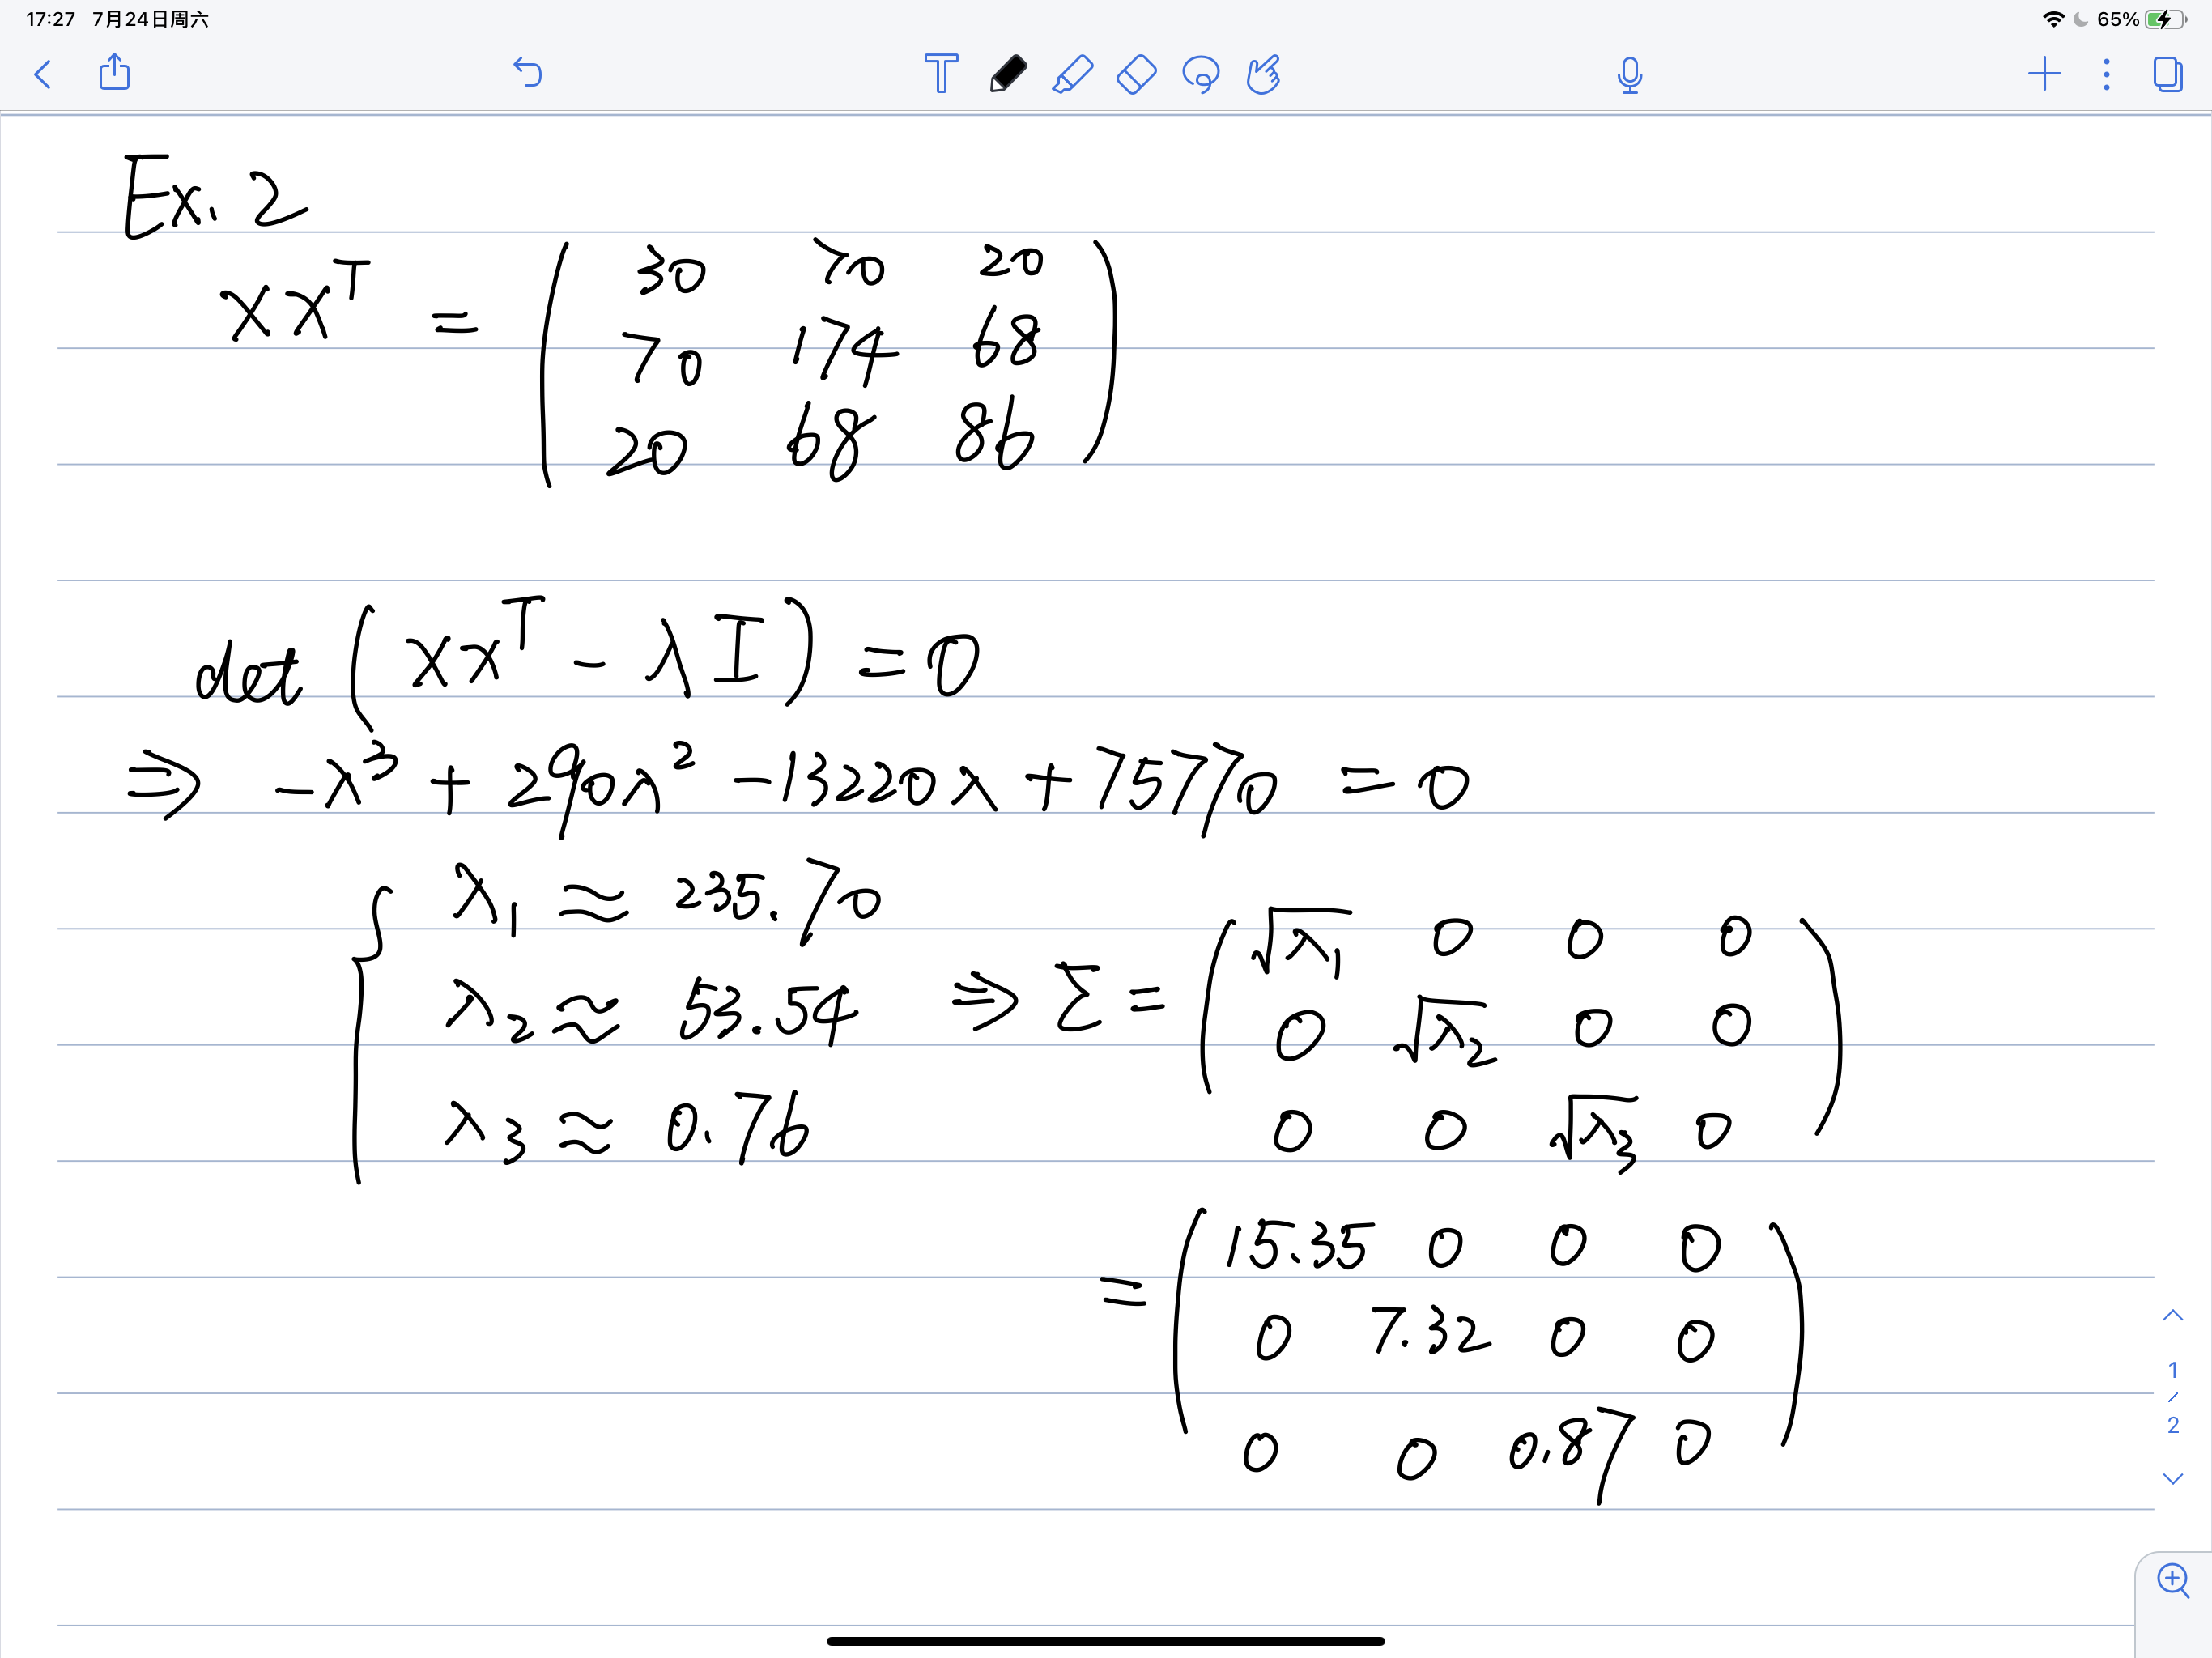 17:27 7月24日周六 65%
Ex. 2
XX^T = ( 30 70 20
70 174 68
20 68 86 )
det (XX^T - λI) = 0
⇒ -λ³ + 290λ² - 13220λ + 7577/0 = 0
λ₁ ≈ 235.70
λ₂ ≈ 53.54 ⇒ Σ = ( √λ₁ 0 0 0
0 √λ₂ 0 0
λ₃ ≈ 0.76 0 0 √λ₃ 0 )
= ( 15.35 0 0 0
0 7.32 0 0
0 0 0.87 0 )
1
/
2